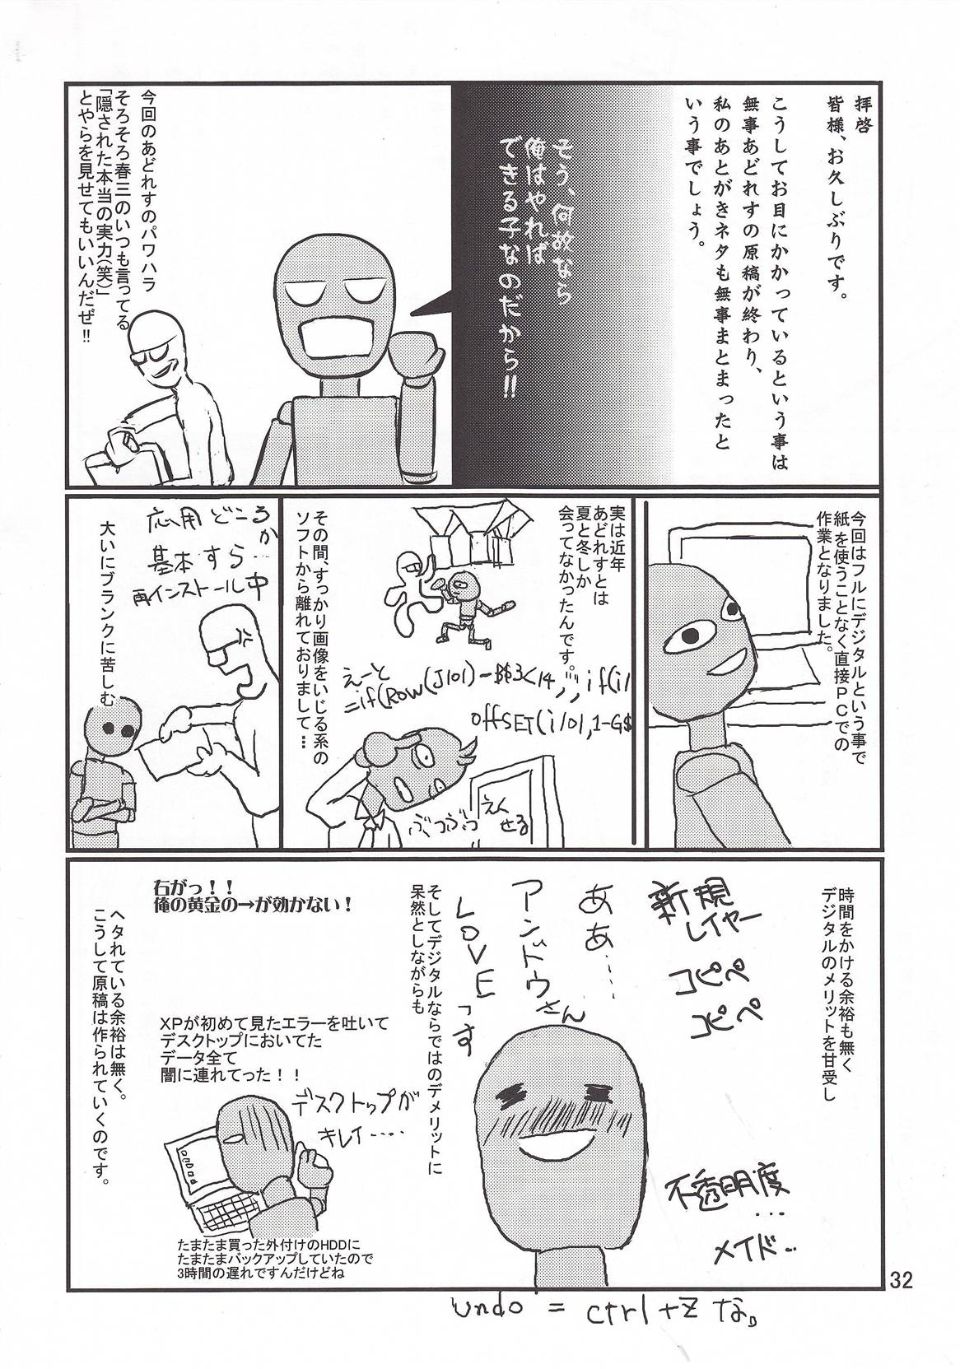 拝啓
皆様、お久しぶりです。
こうしてお目にかかっているという事は
無事あどれすの原稿が終わり、
私のあとがきネタも無事まとまったと
いう事でしょう。
そう、何故なら
俺はやれば
できる子なのだから!!
今回のあどれすのパワハラ
そろそろ春三のいつも言ってる
「隠された本当の実力(笑)」
とやらを見せてもいいんだぜ!!
今回はフルにデジタルという事で
紙を使うことなく直接PCでの
作業となりました。
実は近年
あどれすとは
夏と冬しか
会ってなかったんです。
えーと
=if(ROW(J101)-B$3<14,",if(i1
OffSET(i101,1-G$
ぶつぶつ
えくせる
その間、すっかり画像をいじる系の
ソフトから離れておりまして…
応用どころか
基本すら…
再インストール中
大いにブランクに苦しむ
時間をかける余裕も無く
デジタルのメリットを甘受し
新規レイヤー
コピペ
コピペ
ああ……
アンドゥさん
LOVEっす
不透明度…
メイド…
そしてデジタルならではのデメリットに
呆然としながらも
右がっ!!
俺の黄金の→が効かない!
XPが初めて見たエラーを吐いて
デスクトップにおいてた
データ全て
闇に連れてった!!
デスクトップが
キレイ……
たまたま買った外付けのHDDに
たまたまバックアップしていたので
3時間の遅れですんだけどね
ヘタれている余裕は無く。
こうして原稿は作られていくのです。
undo = ctrl+Z な。
32